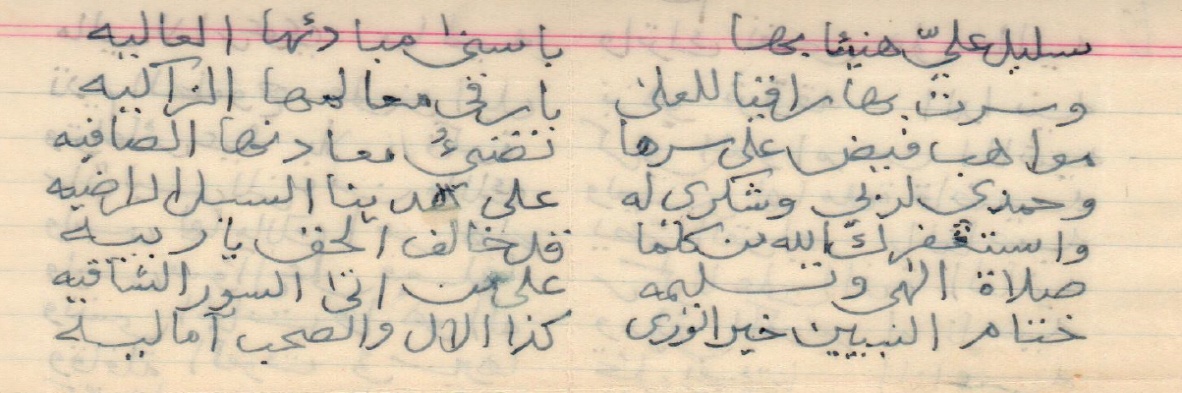 سليل عليّ هنيئا بها باسنى مبادئها العاليه
وسرت بها راقيا للعلى بارقى معالمها الزاكيه
مواهب فيض على سرها تضيئُ معادنها الصافيه
وحمدي لربي وشكري له على هدينا السبل الراضيه
واستغفرك الله من كلما قد خالف الحق يا ربيه
صلاة الهي وتسليمه على من اتى السور الشافيه
ختام النبيين خير الورى كذا الال والصحب آماليه